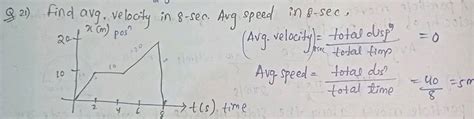 Q 21) find avg. velocity in 8-sec. Avg speed in 8-sec.
x (m) posn
20
10
10
20
2 4 6 8 → t(s) time
(Avg. velocity) = total dispn / total time = 0
Avg speed = total dis / total time = 40 / 8 = 5 m